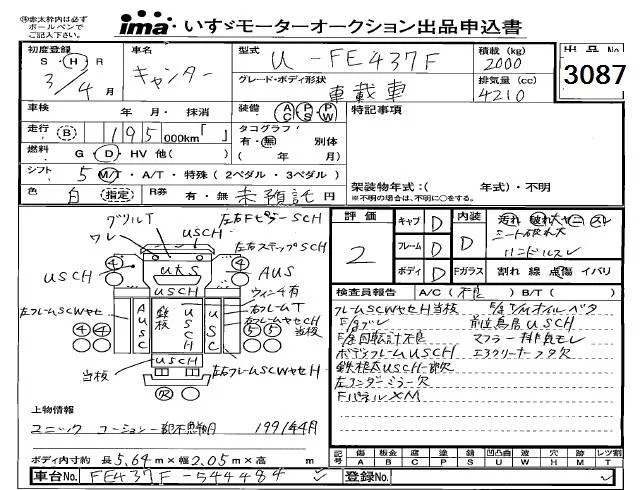 赤太枠内は必ず
ボールペンで
ご記入下さい。
ima いすゞモーターオークション出品申込書
初度登録 S・H・R 3/4月
車名 キャンター
型式 U-FE437F
積載 (kg) 2000
グレード・ボディ形状 車載車
排気量 (cc) 4210
出品No. 3087
車検 年 月・抹消
装備 AC PS PW
特記事項
走行 B 195 000km「 」
タコグラフ 有・無 別体 ( 年 月)
燃料 G・D・HV 他( )
シフト 5 M/T・A/T・特殊 (2ペダル・3ペダル)
架装物年式:( 年式)・不明
※不明の場合は、不明に○をする。
色 白 指定 R券 有・無 未預託 円
評価 2
キャブ D
フレーム D
ボディ D
内装 D
Fガラス 割れ 線 点傷 イバリ
汚れ 破れ大 ヤニ スレ
シート破れ大
ハンドルスレ
グリルT
ワレ
USCH
左右FピラーSCH
左右ステップSCH
④ ④
USCH
UKS
AUS
USCH
ウィンチ有
左フレームSCWセH
AUSC
鉄板
USCH
USC
右フレームT
右フレームヤセCH
当板
④④
⑤⑤
USCH
当板
左右フレームSCWセH
検査員報告 A/C(不良 ) B/T( )
フレームSCWセH 当板
F/gブレ
F/g回転計不良
ボデーフレームUSCH
マフラー排良モレ
エアクリーナーフタ欠
FパネルXM
上物情報
ユニック 1991年4月
ボディ内寸約 長5.64m×幅2.05m×高 m
記号 傷A 板金B 腐C 塗P 錆S 凹凸曲U 波W 穴H 跡M レツ割T
車台No. FE437F-544484
登録No.